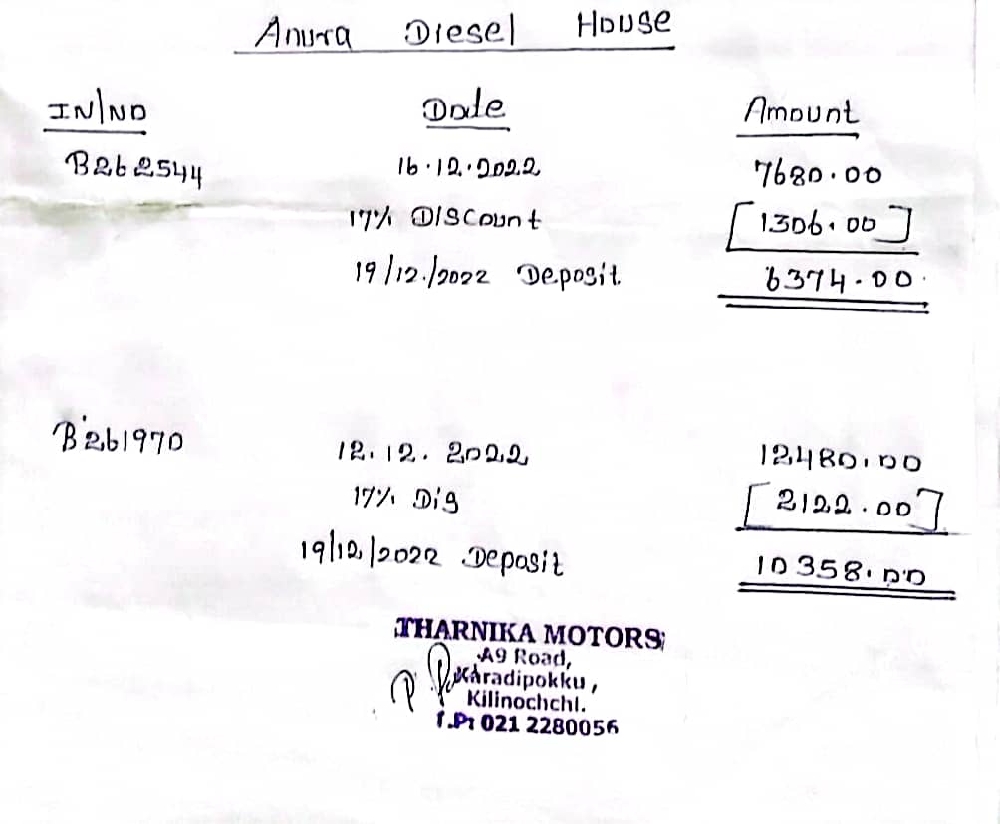 Anura Diesel House
IN/NO Date Amount
B262544 16.12.2022 7680.00
17% Discount [1306.00]
19/12./2022 Deposit 6374.00
B261970 12.12.2022 12480.00
17% Dis [2122.00]
19/12/2022 Deposit 10358.00
THARNIKA MOTORS
A9 Road,
Karadipokku,
Kilinochchi.
T.P: 021 2280056